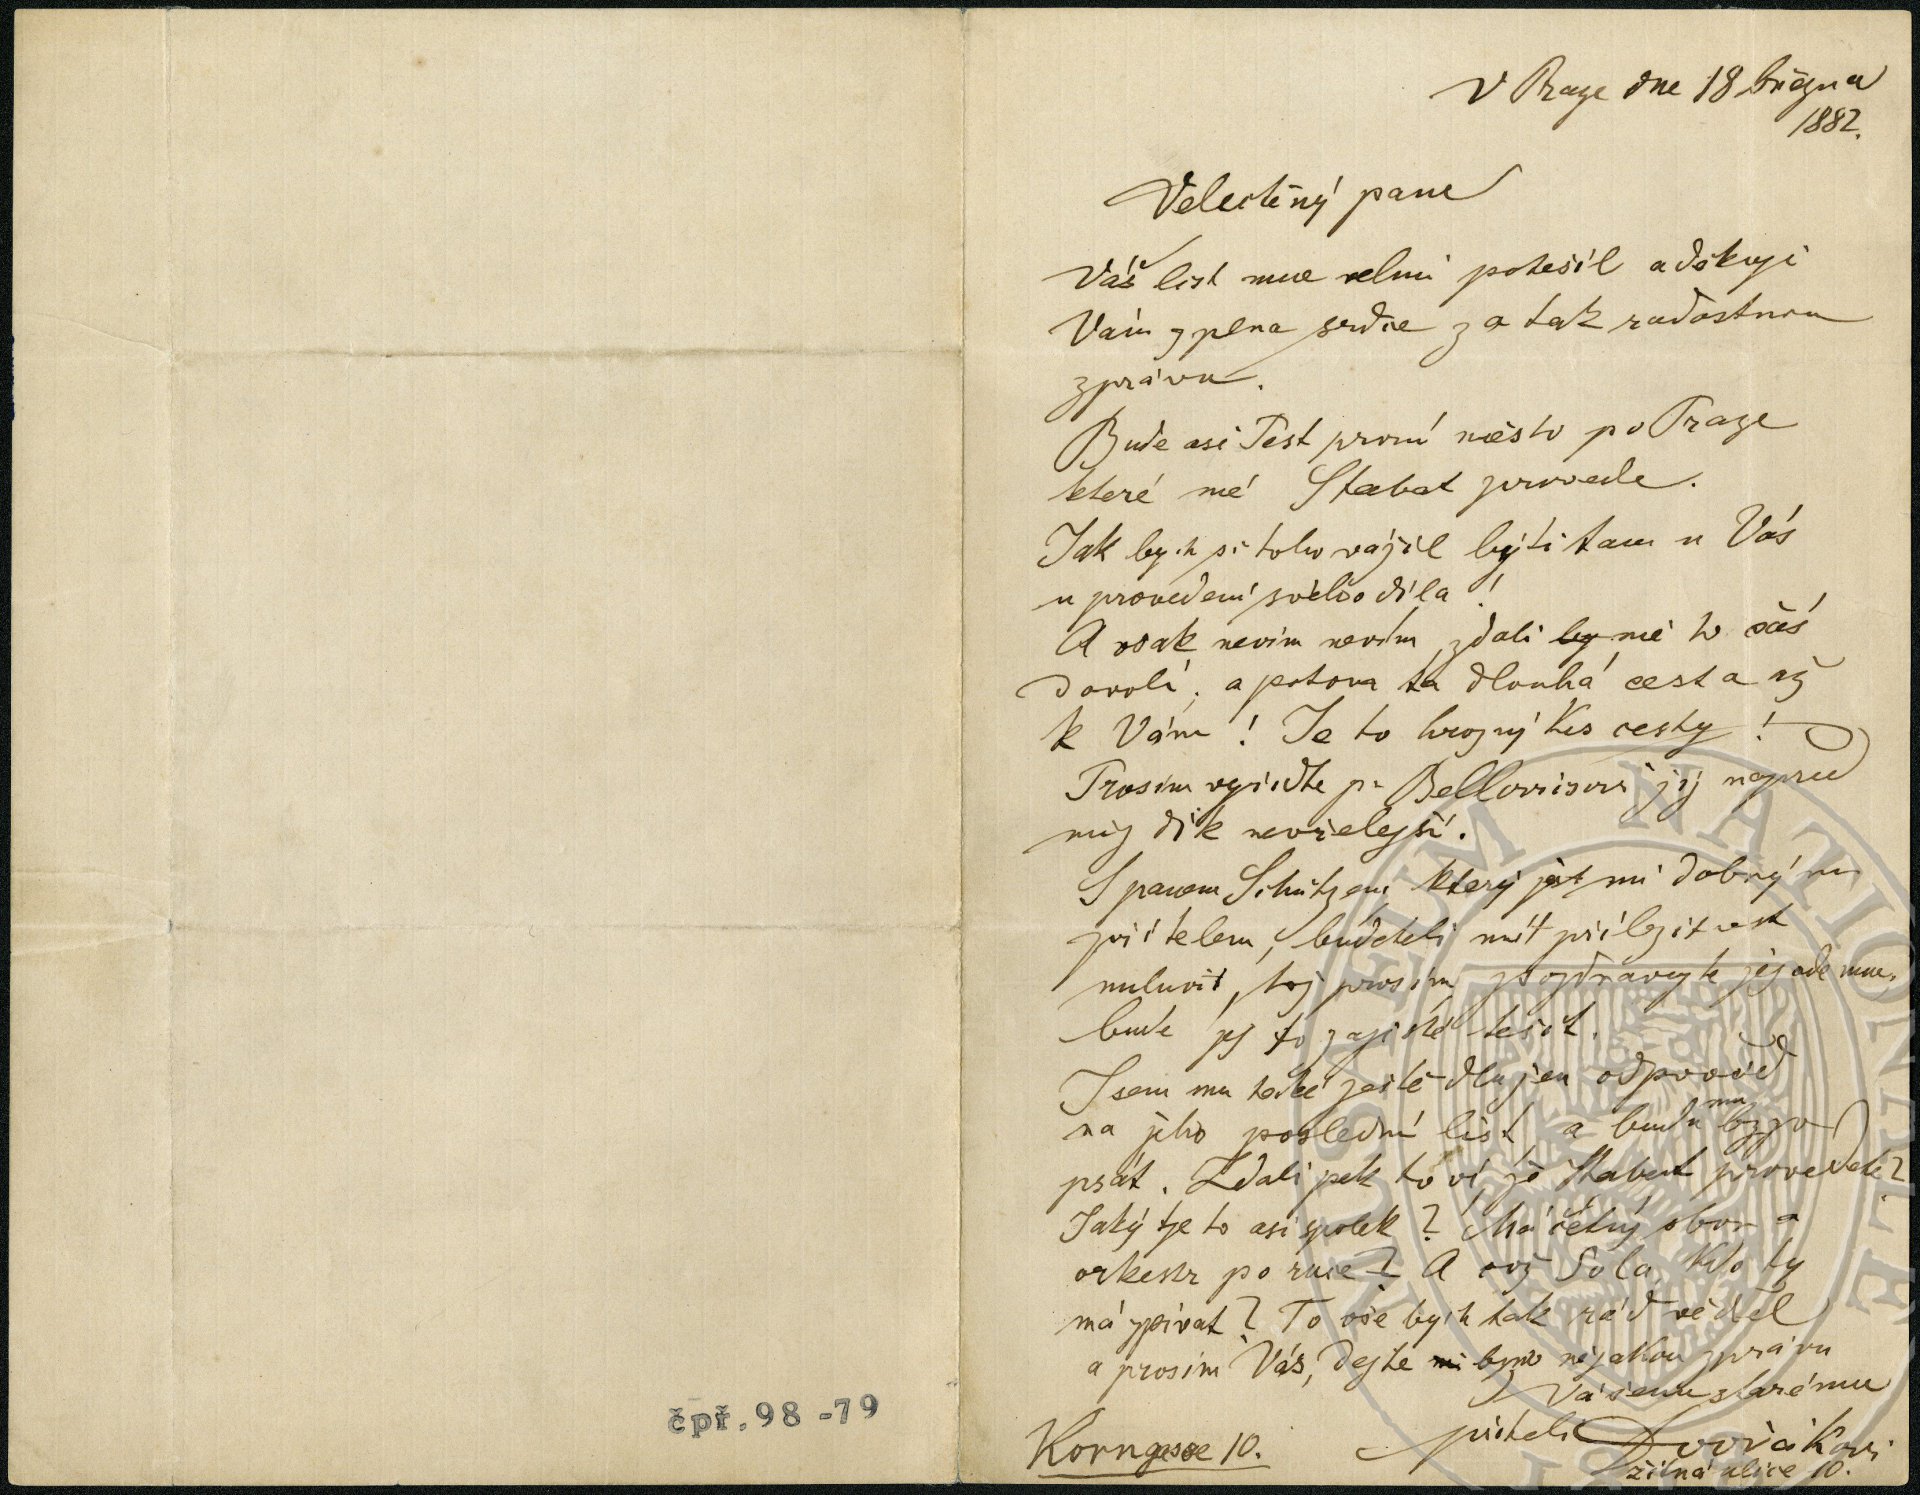 čpř. 98 -79
V Praze dne 18 března
1882.
Velectěný pane
Váš list mne velmi potešil a děkuji
Vám z plna srdce za tak radostnou
zprávu.
Bude asi Pest první město po Praze
které mé Stabat provede.
Jak bych si toho vážil býti tam u Vás
u provedení svého díla!
A vsak nevim nevím zdali by mě to čas
dovolí, a potom ta dlouhá cesta až
k Vám! Je to hrozný kus cesty!
Prosím vyřiďte p.
můj dík nevřelejší.
S panem Schützem, který jest mi dobrým
přítelem, budeteli mít příležitost
mluvit, tož prosím pozdravujte jej ode mne,
bude jej to zajisté těšit.
Jsem mu ještě dlužen odpověď
na jeho poslední list a budu mu brzo
psát. Zdali pak to ví, že Stabat provedete?
Jaký je to asi spolek? Má četný sbor a
orkestr po ruce? A což Sola, kdo ty
má zpívat? To vše bych tak rád věděl
a prosím Vás, dejte mi brzo nějakou zprávu
Vášemu starému
příteli Dvořákovi
žitná ulice 10.
Korngasse 10.
MUSEUM NATIONALE